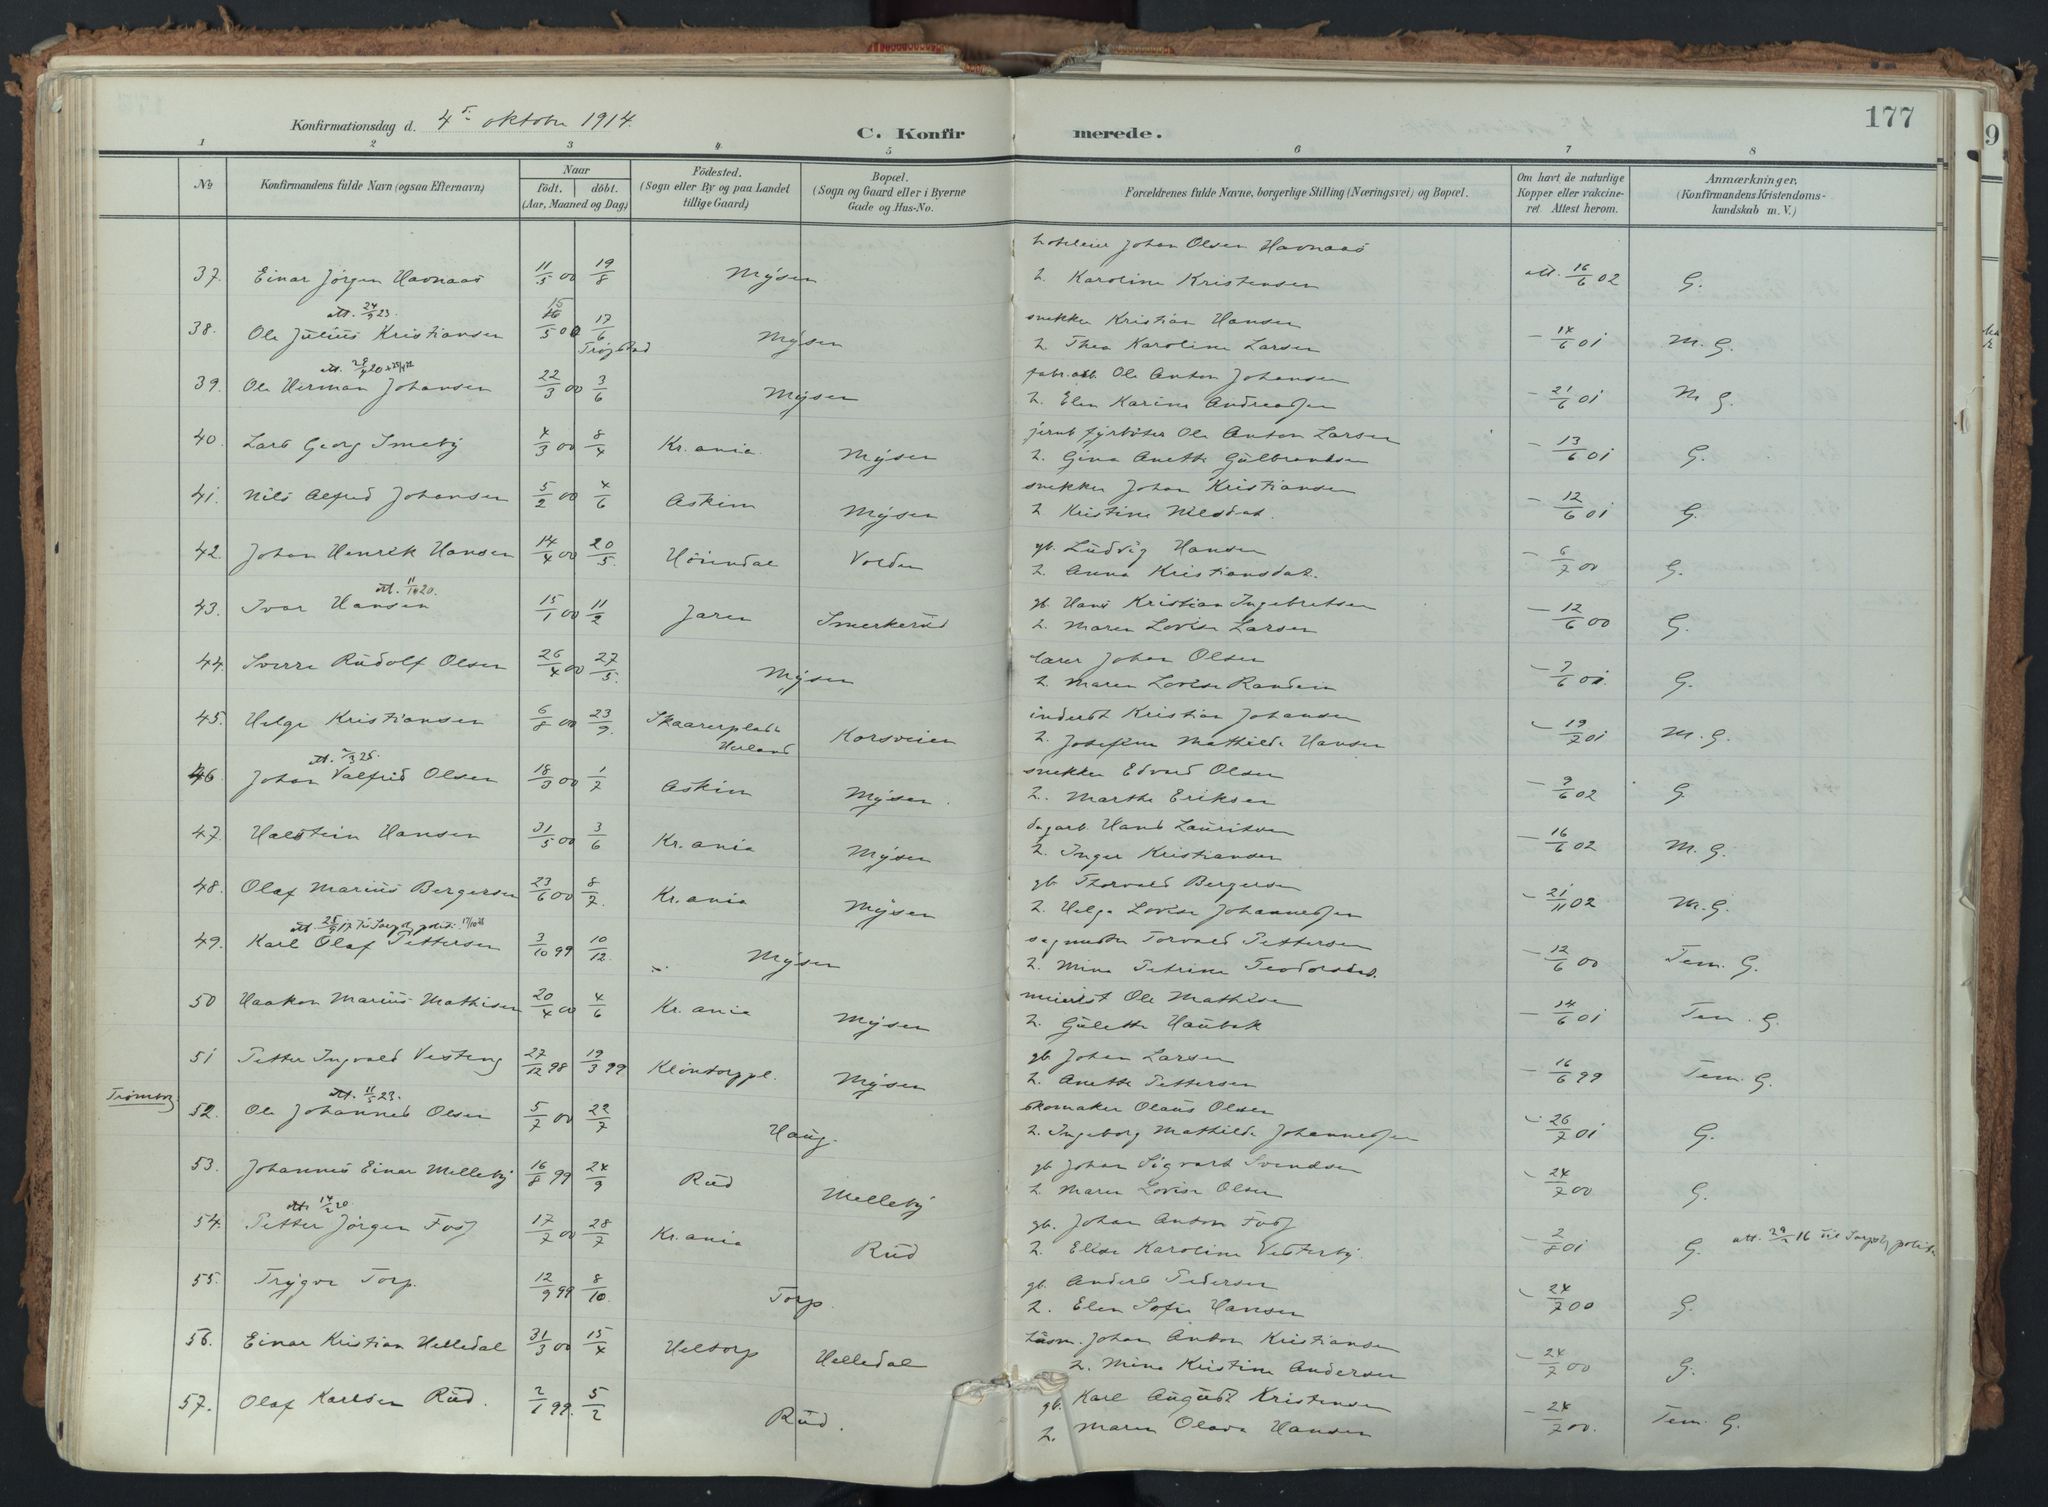 177
Konfirmationsdag d. 4de oktober 1914.
C. Konfirmerede.
1 2 3 4. 5 6 7 8
No
Konfirmandens fulde Navn (ogsaa Efternavn)
Naar
født. døbt.
(Aar, Maaned og Dag)
Födested.
(Sogn eller By og paa Landet
tillige Gaard)
Bopæl.
(Sogn og Gaard eller i Byerne
Gade og Hus-No.
Forældrenes fulde Navne, borgerlige Stilling (Næringsvei) og Bopæl.
Om havt de naturlige
Kopper eller vakcine-
ret. Attest herom.
Anmærkninger,
(Konfirmandens Kristendoms-
kundskab m. V.)
Johan Olsen Havnaas
37. Einar Jørgen Havnaas 11/5 00 19/8 Mysen 2. Karoline Kristensen att. 16/6 02 G.
att. 24/9 23.
snekker Kristian Hansen
38. Ole Julius Kristiansen 15/5 00 17/6 Trøgstad Mysen 2. Thea Karoline Larsen - 14/6 01 M. G.
fabr.arb. Ole Anton Johansen
39. Ole Herman Johansen 22/3 00 3/6 Mysen 2. Elen Karine Andreassen - 21/6 01 M G.
jernb. fyrbøter Ole Anton Larsen
40. Lars Georg Smeby 4/3 00 8/4 Kr.ania. Mysen 2. Gina Anette Gulbrandsen - 13/6 01 G.
snekker Johan Kristiansen
41. Nils Alfred Johansen 5/2 00 4/6 Askim Mysen 2. Kristine Nilsdat. - 12/6 01 G.
gb. Ludvig Hansen
42. Johan Henrik Hansen 14/4 00 20/5. Hvindal Volden 2. Anna Kristiansdat. - 6/7 00 G.
att. 11/1 20.
gb. Hans Kristian Ingebretsen
43. Ivar Hansen 15/1 00 11/2 Jaren Smerkerud 2. Maren Lovise Larsen - 12/6 00 G.
lærer Johan Olsen
44. Sverre Rudolf Olsen 26/4 00 27/5. Mysen 2. Maren Lovise Randem - 7/6 01. G.
inderst Kristian Johansen
45. Helge Kristiansen 6/8 00 23/9. Skaarerplads Herland Korsveien 2. Josefine Mathilde Hansen - 19/7 01 M. G.
snekker Edvard Olsen
46. Johan Valfrid Olsen 18/3 00 1/7 Askim Mysen. 2. Marthe Eriksen - 9/6 02 G.
dagarb. Hans Lauritsen
47. Halstein Hansen 31/5 00 3/6 Kr.ania Mysen 2. Inger Kristiansen - 16/6 02 M. G.
gb. Thorvald Bergersen
48. Olaf Marius Bergersen 23/6 00 8/7 Kr.ania Mysen 2. Helga Lovise Johannessen - 21/11 02 M. G.
sagmester Torvald Pettersen
49. Karl Olaf Pettersen 3/10 99 10/12. Mysen 2. Mina Petrine Teodorsdat. - 12/6 00 Tem. G.
meierist Ole Mathisen
50 Haakon Marius Mathisen 20/4 00 4/6 Kr.ania Mysen 2. Gulette Haubek - 14/6 01 Tem. G.
gb. Johan Larsen
51 Petter Ingvald Vesteng 27/12 98 19/3 99 Klöntorppl. Mysen 2. Anette Pettersen - 16/6 99 Tem. G.
Trømborg att. 11/5 23.
skomaker Olaus Olsen
52. Ole Johannes Olsen 5/7 00 22/7 Haug. 2. Ingeborg Mathilde Johannessen - 26/7 01 G.
gb. Johan Sigvart Svendsen
53. Johannes Einar Melleby 16/8 99 24/9 Rud Melleby 2. Maren Lovise Olsen - 24/7 00 G.
att. 14/2 20
gb. Johan Anton Foss
54. Petter Jørgen Foss 17/7 00 28/7 Kr.ania Rud 2. Elise Karoline Vesterby. - 2/8 01 G.
gb. Anders Pedersen
55. Trygve Torp. 12/9 99 8/10. Torp. 2. Elen Sofie Hansen - 24/7 00 G.
husm. Johan Anton Kristiansen
56. Einar Kristian Helledal 31/3 00 15/4 Heltorp Helledal 2. Mina Kristine Andersen - 24/7 00 G.
gb. Karl August Kristensen
57. Olaf Karlsen Rud. 2/1 99. 5/2 Rud. 2. Maren Olava Hansen - 24/7 00. Tem. G.